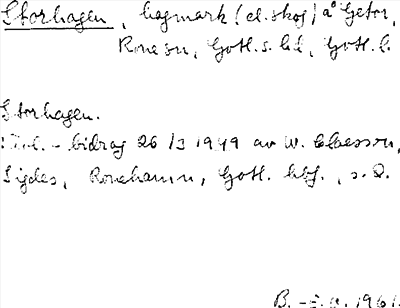 Storhagen, hagmark (el. skog) å Getor,
Rone sn, Gotl. s. hd, Gotl. l.
Storhagen.
bidrag 26/3 1949 av W. Claesson,
Sigdes, Ronehamn, Gotl. s. 2.
B. 1961.